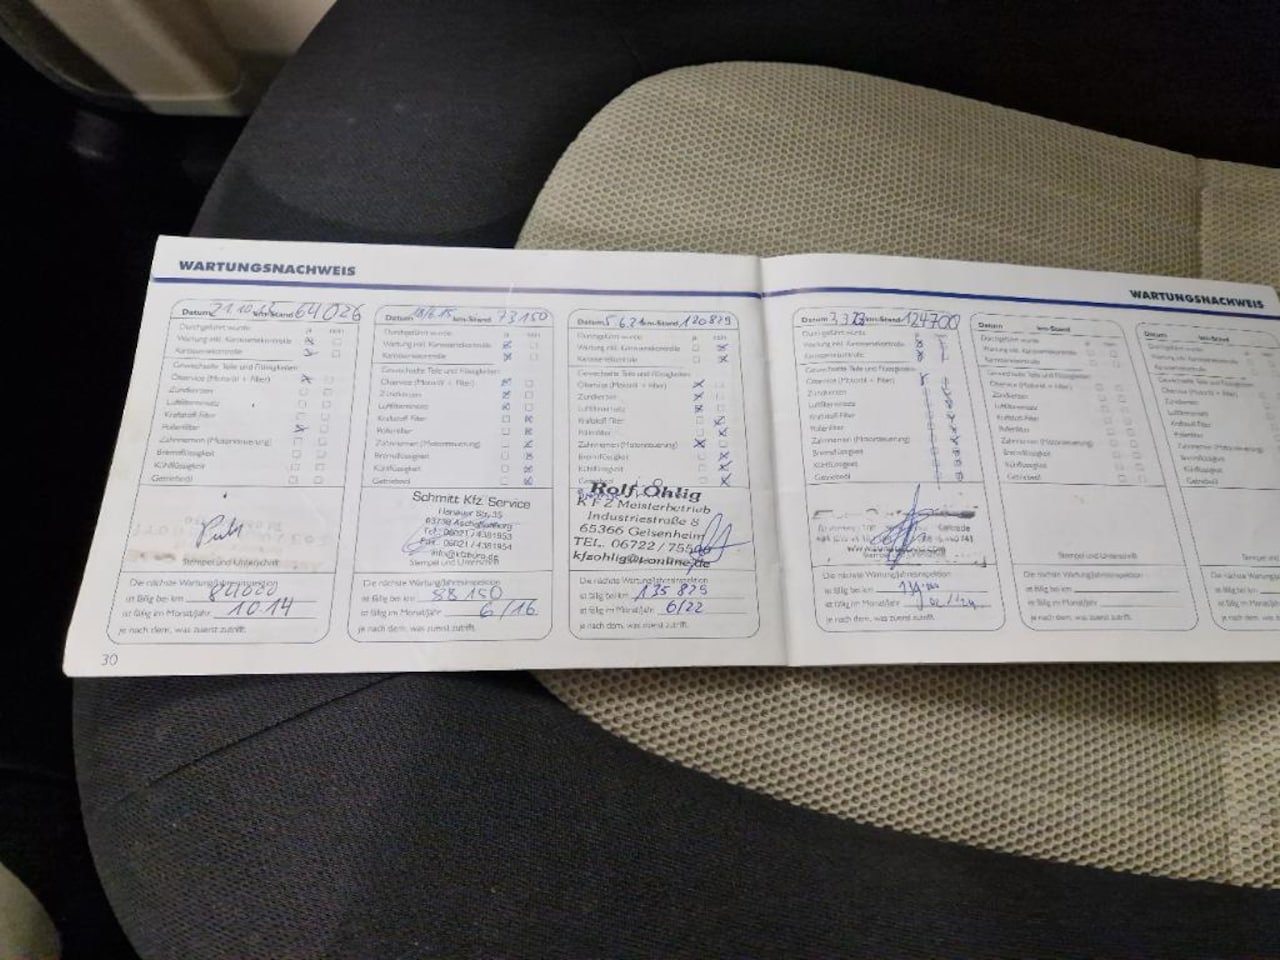 WARTUNGSNACHWEIS
WARTUNGSNACHWEIS
Datum 21.10 km-Stand 64026
Durchgeführt wurde: ja nein
Wartung inkl. Karosseriekontrolle
Karosseriekontrolle
Gewechselte Teile und Flüssigkeiten
Ölservice (Motoröl + Filter)
Zündkerzen
Luftfiltereinsatz
Kraftstoff-Filter
Pollenfilter
Zahnriemen (Motorsteuerung)
Bremsflüssigkeit
Kühlflüssigkeit
Getriebeöl
Stempel und Unterschrift
Die nächste Wartung/Jahresinspektion
ist fällig bei km
ist fällig im Monat/Jahr 10 14
je nach dem, was zuerst zutrifft.
Datum km-Stand 73150
Durchgeführt wurde: ja nein
Wartung inkl. Karosseriekontrolle
Karosseriekontrolle
Gewechselte Teile und Flüssigkeiten
Ölservice (Motoröl + Filter)
Zündkerzen
Luftfiltereinsatz
Kraftstoff-Filter
Pollenfilter
Zahnriemen (Motorsteuerung)
Bremsflüssigkeit
Kühlflüssigkeit
Getriebeöl
Schmitt Kfz. Service
Hanauer Str. 35
63739 Aschaffenburg
Tel.: 06021 / 4381953
Fax: 06021 / 4381954
info@kfzbüro.de
Stempel und Unterschrift
Die nächste Wartung/Jahresinspektion
ist fällig bei km 88 150
ist fällig im Monat/Jahr 6/16
je nach dem, was zuerst zutrifft.
Datum 5.6.21 km-Stand 120829
Durchgeführt wurde: ja nein
Wartung inkl. Karosseriekontrolle
Karosseriekontrolle
Gewechselte Teile und Flüssigkeiten
Ölservice (Motoröl + Filter)
Zündkerzen
Luftfiltereinsatz
Kraftstoff-Filter
Pollenfilter
Zahnriemen (Motorsteuerung)
Bremsflüssigkeit
Kühlflüssigkeit
Getriebeöl
Rolf Ohlig
KFZ Meisterbetrieb
Industriestraße 8
65366 Geisenheim
TEL. 06722 /
kfzohlig@t-online.de
Die nächste Wartung/Jahresinspektion
ist fällig bei km 135 829
ist fällig im Monat/Jahr 6/22
je nach dem, was zuerst zutrifft.
Datum 3,3,23 km-Stand 124700
Durchgeführt wurde:
Wartung inkl. Karosseriekontrolle
Karosseriekontrolle
Gewechselte Teile und Flüssigkeiten
Ölservice (Motoröl + Filter)
Zündkerzen
Luftfiltereinsatz
Kraftstoff-Filter
Pollenfilter
Zahnriemen (Motorsteuerung)
Bremsflüssigkeit
Kühlflüssigkeit
Getriebeöl
Die nächste Wartung/Jahresinspektion
ist fällig bei km
ist fällig im Monat/Jahr
je nach dem, was zuerst zutrifft.
Datum km-Stand
Durchgeführt wurde: ja nein
Wartung inkl. Karosseriekontrolle
Karosseriekontrolle
Gewechselte Teile und Flüssigkeiten
Ölservice (Motoröl + Filter)
Zündkerzen
Luftfiltereinsatz
Kraftstoff-Filter
Pollenfilter
Zahnriemen (Motorsteuerung)
Bremsflüssigkeit
Kühlflüssigkeit
Getriebeöl
Stempel und Unterschrift
Die nächste Wartung/Jahresinspektion
ist fällig bei km
ist fällig im Monat/Jahr
je nach dem, was zuerst zutrifft.
Datum km-Stand
Durchgeführt wurde:
Wartung inkl. Karosseriekontrolle
Karosseriekontrolle
Gewechselte Teile und Flüssigkeiten
Ölservice (Motoröl + Filter)
Zündkerzen
Luftfiltereinsatz
Kraftstoff-Filter
Pollenfilter
Zahnriemen (Motorsteuerung)
Bremsflüssigkeit
Kühlflüssigkeit
Getriebeöl
Die nächste Wartung/Jahresinspektion
ist fällig bei km
ist fällig im Monat/Jahr
je nach dem, was zuerst zutrifft.
30